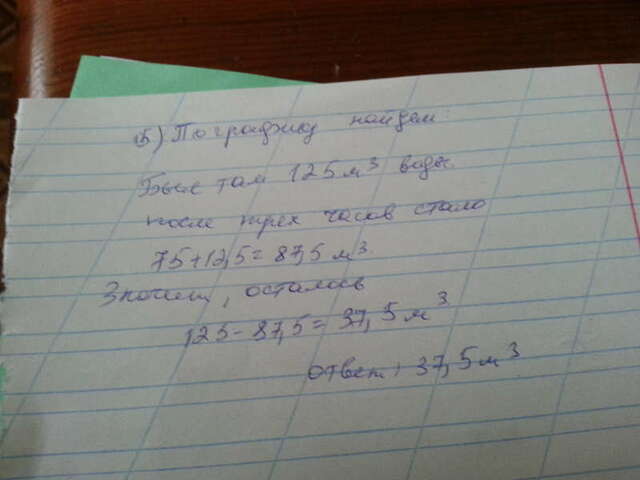 5) По графику найдем:
Было там 125 м³ воды
после трех часов стало
75+12,5=87,5 м³.
Значит, осталось
125-87,5=37,5 м³
ответ: 37,5 м³